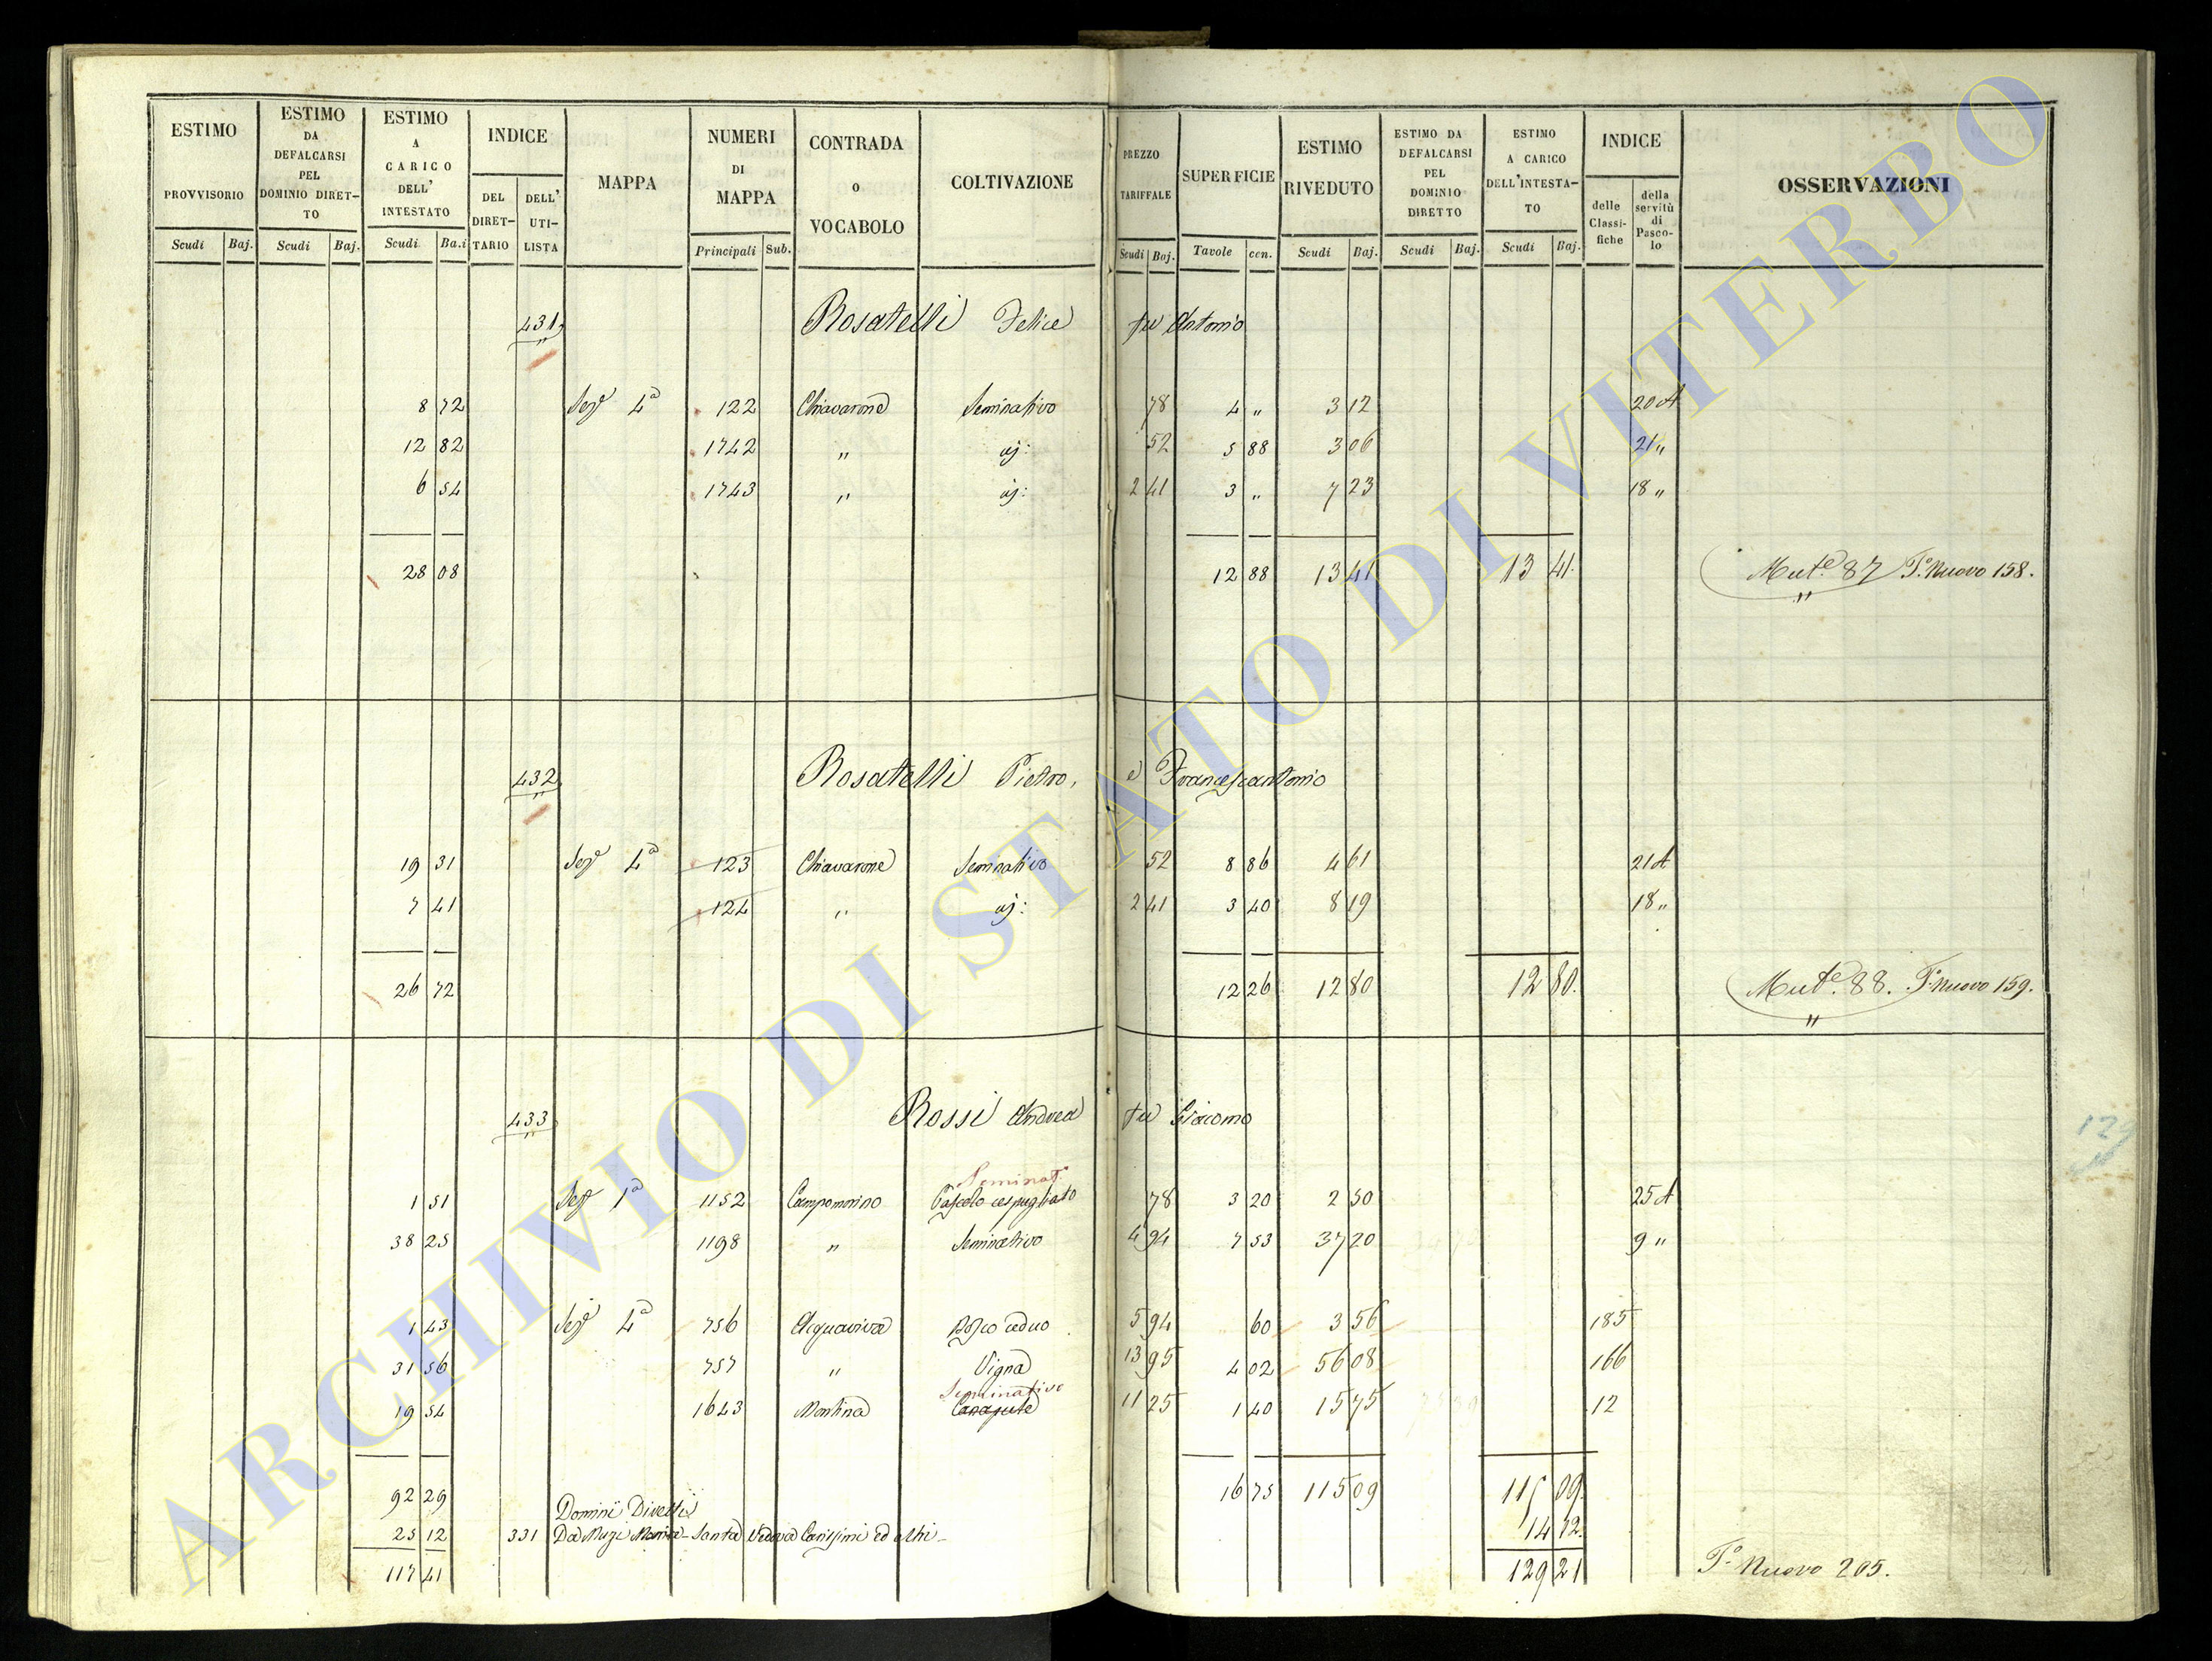 ESTIMO PROVVISORIO Scudi Baj. | ESTIMO DA DEFALCARSI PEL DOMINIO DIRETTO Scudi Baj. | ESTIMO A CARICO DELL' INTESTATO Scudi Ba.i | INDICE DEL DIRETTARIO DELL' UTILISTA | MAPPA | NUMERI DI MAPPA Principali Sub. | CONTRADA O VOCABOLO | COLTIVAZIONE | PREZZO TARIFFALE Scudi Baj. | SUPERFICIE Tavole cen. | ESTIMO RIVEDUTO Scudi Baj. | ESTIMO DA DEFALCARSI PEL DOMINIO DIRETTO Scudi Baj. | ESTIMO A CARICO DELL'INTESTATO Scudi Baj. | INDICE delle Classifiche della servitù di Pascolo | OSSERVAZIONI
431 Rosatelli Felice fu Antonio
8 72 Sez.e 4a 122 Chiavarone Seminativo 78 4 " 3 12 20 A
12 82 1742 " " 52 5 88 3 06 21 "
6 54 1743 " " 2 41 3 " 7 23 18 "
28 08 12 88 13 41 13 41. Mut.e 87 T.o Nuovo 158.
432 Rosatelli Pietro, e Francescantonio
19 31 Sez.e 4a 123 Chiavarone Seminativo 52 8 86 4 61 21 A
7 41 124 " " 2 41 3 40 8 19 18 "
26 72 12 26 12 80 12 80. Mut.e 88. T.o Nuovo 159.
433 Rossi Andrea fu Giacomo
Seminat.o
1 51 Sez.e 1a 1152 Campomorino Pascolo cespugliato 78 3 20 2 50 25 A
38 25 1198 " Seminativo 4 94 7 53 37 20 9 "
1 43 Sez.e 4a 756 Acquaviva Bosco ceduo 5 94 60 3 56 185
31 56 757 " Vigna 13 95 4 02 56 08 166
Seminativo
19 54 1643 Montina Canapule 11 25 1 40 15 75 12
92 29 16 75 115 09 115 09.
Dominii Diretti
25 12 331 Da Muzi Maria Santa Vedova Carissimi ed altri 14 12.
117 41 129 21 T.o Nuovo 205.
129
ARCHIVIO DI STATO DI VITERBO